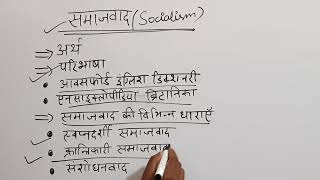 समाजवाद (Socialism)
⇒ अर्थ
⇒ परिभाषा
• आक्सफोर्ड इंग्लिश डिक्शनरी
• एनसाइक्लोपीडिया ब्रिटानिका
⇒ समाजवाद की विभिन्न धाराएँ
• स्वप्नदर्शी समाजवाद
• क्रान्तिकारी समाजवाद
• संशोधनवाद